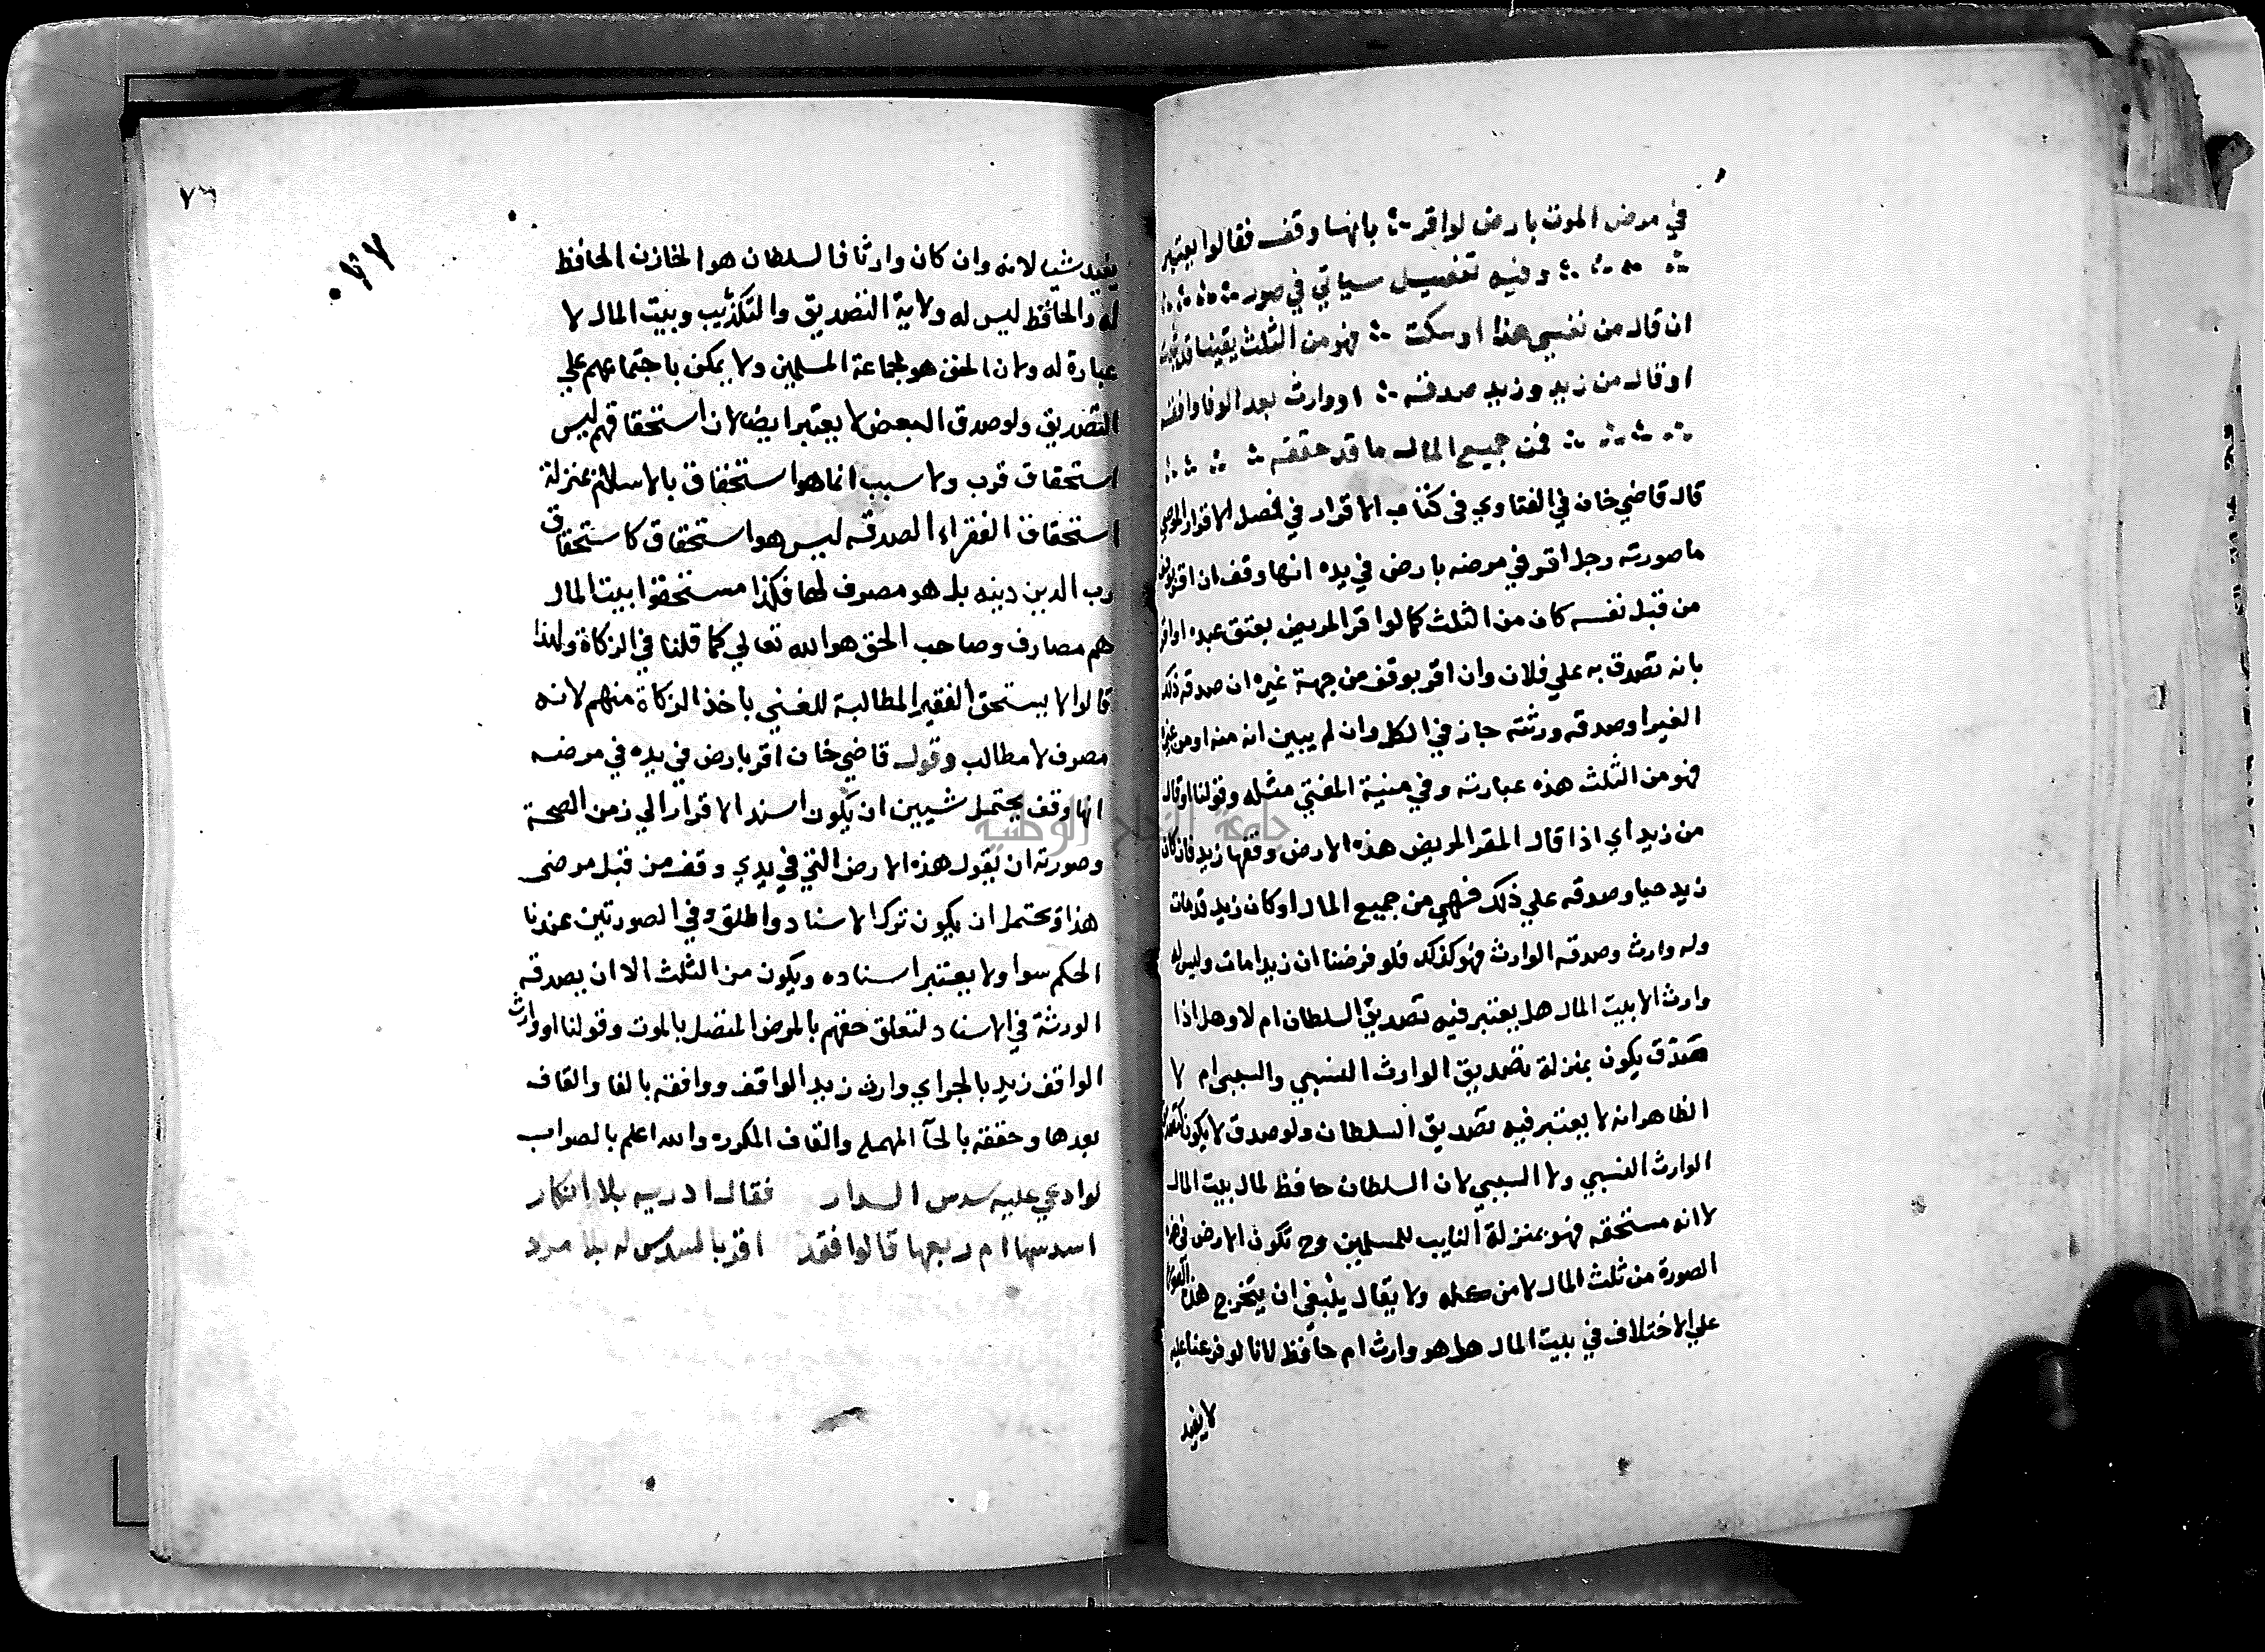 في مرض الموت بارض لو اقر ∴ بانها وقف فقالوا يعتبر
∴ ∴ ∴ ∴ وفيه تفصيل سياتي في صور ∴ ∴ ∴ ∴
ان قال من نفسي هذا او سكت ∴ فهو من الثلث يقينا قد
او قال من زيد وزيد صدقه ∴ او وارث بعد الوفا وافقه
∴ ∴ ∴ ∴ فمن جميع المال ما قد حققه ∴ ∴ ∴ ∴
قال قاضي خان في الفتاوي في كتاب الاقرار في فصل الاقرار
ما صورته رجل اقر في مرضه بارض في يده انها وقف ان اقر بوقف
من قبل نفسه كان من الثلث كما لو اقر المريض بعتق عبده او اقر
بانه تصدق به علي فلان وان اقر بوقف من جهة غيره ان صدقه ذلك
الغير او صدقه ورثته جاز في الكل وان لم يبين انه منه او من غيره
فهو من الثلث هذه عبارته وفي منية المفتي مثله وقولنا او قال
من زيد اي اذا قال المقر المريض هذه الارض وقفها زيد فان كان
زيد حيا وصدقه علي ذلك فهي من جميع المال او كان زيد قد مات
وله وارث وصدقه الوارث فهو كذلك فلو فرضنا ان زيدا مات وليس له
وارث الا بيت المال هل يعتبر فيه تصديق السلطان ام لا وهل اذا
صدق يكون بمنزلة تصديق الوارث النسبي والسببي ام لا
الظاهر انه لا يعتبر فيه تصديق السلطان ولو صدق لا يكون كتصديق
الوارث النسبي ولا السببي لان السلطان حافظ لمال بيت المال
لا انه مستحقه فهو بمنزلة النايب للمسلمين وح تكون الارض في هذه
الصورة من ثلث المال لا من كله ولا يقال ينبغي ان يتخرج هذا القول
علي الاختلاف في بيت المال هل هو وارث ام حافظ لانا لو فرعنا عليه
لا يفيد
٧٦
يفيد شيا لانه وان كان وارثا فالسلطان هو الخازن الحافظ
له والحافظ ليس له ولاية التصديق والتكذيب وبيت المال لا
عبارة له ولان الحق هو لجماعة المسلمين ولا يمكن باجتماعهم علي
التصديق ولو صدق البعض لا يعتبر ايضا لان استحقاقهم ليس
استحقاق قرب ولا سبب انما هو استحقاق بالاسلام بمنزلة
استحقاق الفقراء الصدقه ليس هو استحقاق كاستحقاق
رب الدين دينه بل هو مصرف لها فكذا مستحقوا بيت المال
هم مصارف وصاحب الحق هو الله تعالي كما قلنا في الزكاة ولهذا
قالوا لا يستحق الفقير المطالبة للغني باخذ الزكاة منهم لانه
مصرف لا مطالب وقول قاضي خان اقر بارض في يده في مرضه
انها وقف يحتمل شيين ان يكون اسند الاقرار الي زمن الصحة
وصورته ان يقول هذه الارض التي في يدي وقف من قبل مرضى
هذا ويحتمل ان يكون ترك الاسناد واطلق وفي الصورتين عندنا
الحكم سوا ولا يعتبر اسناده ويكون من الثلث الا ان يصدقه
الورثة في الاسناد لتعلق حقهم بالمرض المتصل بالموت وقولنا او وارث
الواقف زيد بالجر اي وارث زيد الواقف ووافقه بالفا والقاف
بعدها وحققه بالحآ المهمله والقاف المكوره والله اعلم بالصواب
لو ادعي عليه سدس الدار فقال ادريه بلا انكار
اسدسها ام ربعها قالوا فقد اقر بالسدس له بلا مرد
جامعة النجاح الوطنية